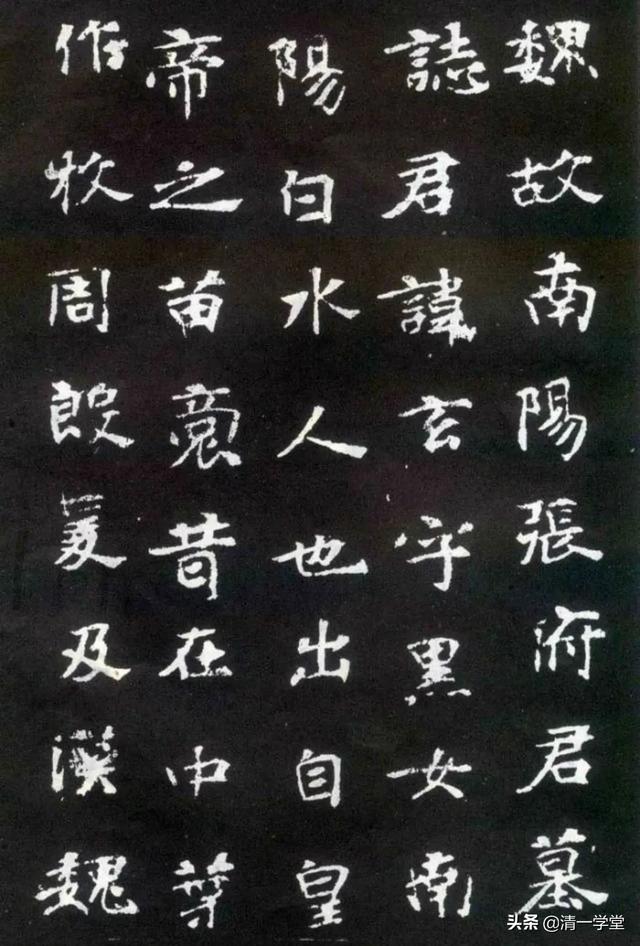 魏故南陽張府君墓
誌君諱玄字黑女南
陽白水人也出自皇
帝之苗裔昔在中葉
作牧周殷夏及漢魏
头条 @清一学堂